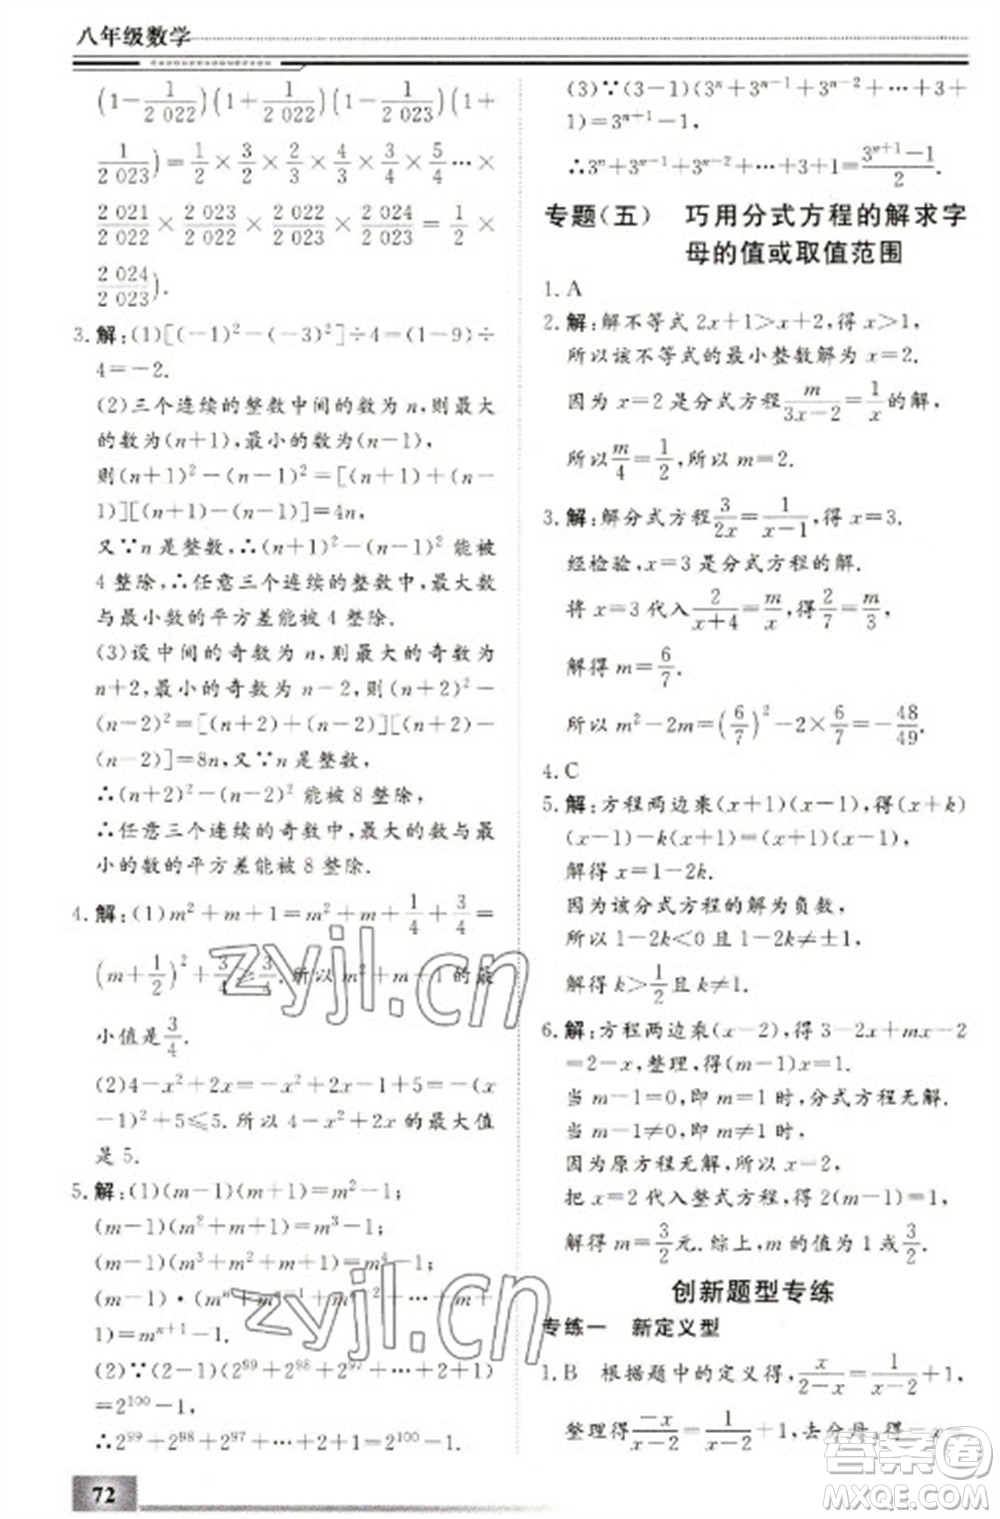 八年级数学
(1-1/2 022)(1+1/2 022)(1-1/2 023)(1+
1/2 023)=1/2×3/2×2/3×4/3×3/4×5/4×…×
2 021/2 022×2 023/2 022×2 022/2 023×2 024/2 023=1/2×
2 024/2 023).
3. 解:(1)[(-1)²-(-3)²]÷4=(1-9)÷
4=-2.
(2)三个连续的整数中间的数为n,则最大
的数为(n+1),最小的数为(n-1),
则(n+1)²-(n-1)²=[(n+1)+(n-
1)][(n+1)-(n-1)]=4n,
又∵n是整数,∴(n+1)²-(n-1)²能被
4整除,∴任意三个连续的整数中,最大数
与最小数的平方差能被4整除.
(3)设中间的奇数为n,则最大的奇数为
n+2,最小的奇数为n-2,则(n+2)²-
(n-2)²=[(n+2)+(n-2)][(n+2)-
(n-2)]=8n,又∵n是整数,
∴(n+2)²-(n-2)²能被8整除,
∴任意三个连续的奇数中,最大的数与最
小的数的平方差能被8整除.
4. 解:(1)m²+m+1=m²+m+1/4+3/4=
(m+1/2)²+3/4≥3/4.所以m²+m+1的最
小值是3/4.
(2)4-x²+2x=-x²+2x-1+5=-(x
-1)²+5≤5.所以4-x²+2x的最大值
是5.
5. 解:(1)(m-1)(m+1)=m²-1;
(m-1)(m²+m+1)=m³-1;
(m-1)(m³+m²+m+1)=m⁴-1;
(m-1)·(mⁿ+mⁿ⁻¹+mⁿ⁻²+…+m+
1)=mⁿ⁺¹-1;
(2)∵(2-1)(2⁹⁹+2⁹⁸+2⁹⁷+…+2+1)
=2¹⁰⁰-1,
∴2⁹⁹+2⁹⁸+2⁹⁷+…+2+1=2¹⁰⁰-1.
72
(3)∵(3-1)(3ⁿ+3ⁿ⁻¹+3ⁿ⁻²+…+3+
1)=3ⁿ⁺¹-1,
∴3ⁿ+3ⁿ⁻¹+3ⁿ⁻²+…+3+1=(3ⁿ⁺¹-1)/2.
专题(五) 巧用分式方程的解求字
母的值或取值范围
1. A
2. 解:解不等式2x+1>x+2,得x>1,
所以该不等式的最小整数解为x=2.
因为x=2是分式方程m/(3x-2)=1/x的解,
所以m/4=1/2,所以m=2.
3. 解:解分式方程3/2x=1/(x-1),得x=3.
经检验,x=3是分式方程的解.
将x=3代入2/(x+4)=m/x,得2/7=m/3,
解得m=6/7.
所以m²-2m=(6/7)²-2×6/7=-48/49.
4. C
5. 解:方程两边乘(x+1)(x-1),得(x+k)
(x-1)-k(x+1)=(x+1)(x-1),
解得x=1-2k.
因为该分式方程的解为负数,
所以1-2k<0且1-2k≠±1,
解得k>1/2且k≠1.
6. 解:方程两边乘(x-2),得3-2x+mx-2
=2-x,整理,得(m-1)x=1.
当m-1=0,即m=1时,分式方程无解.
当m-1≠0,即m≠1时,
因为原方程无解,所以x=2,
把x=2代入整式方程,得2(m-1)=1,
解得m=3/2元.综上,m的值为1或3/2.
创新题型专练
专练一 新定义型
1. B 根据题中的定义得,x/(2-x)=1/(x-2)+1,
整理得-x/(x-2)=1/(x-2)+1,去分母,得-x=
zyjl.cn
zyjl.cn
答案圈
MXQE.COM